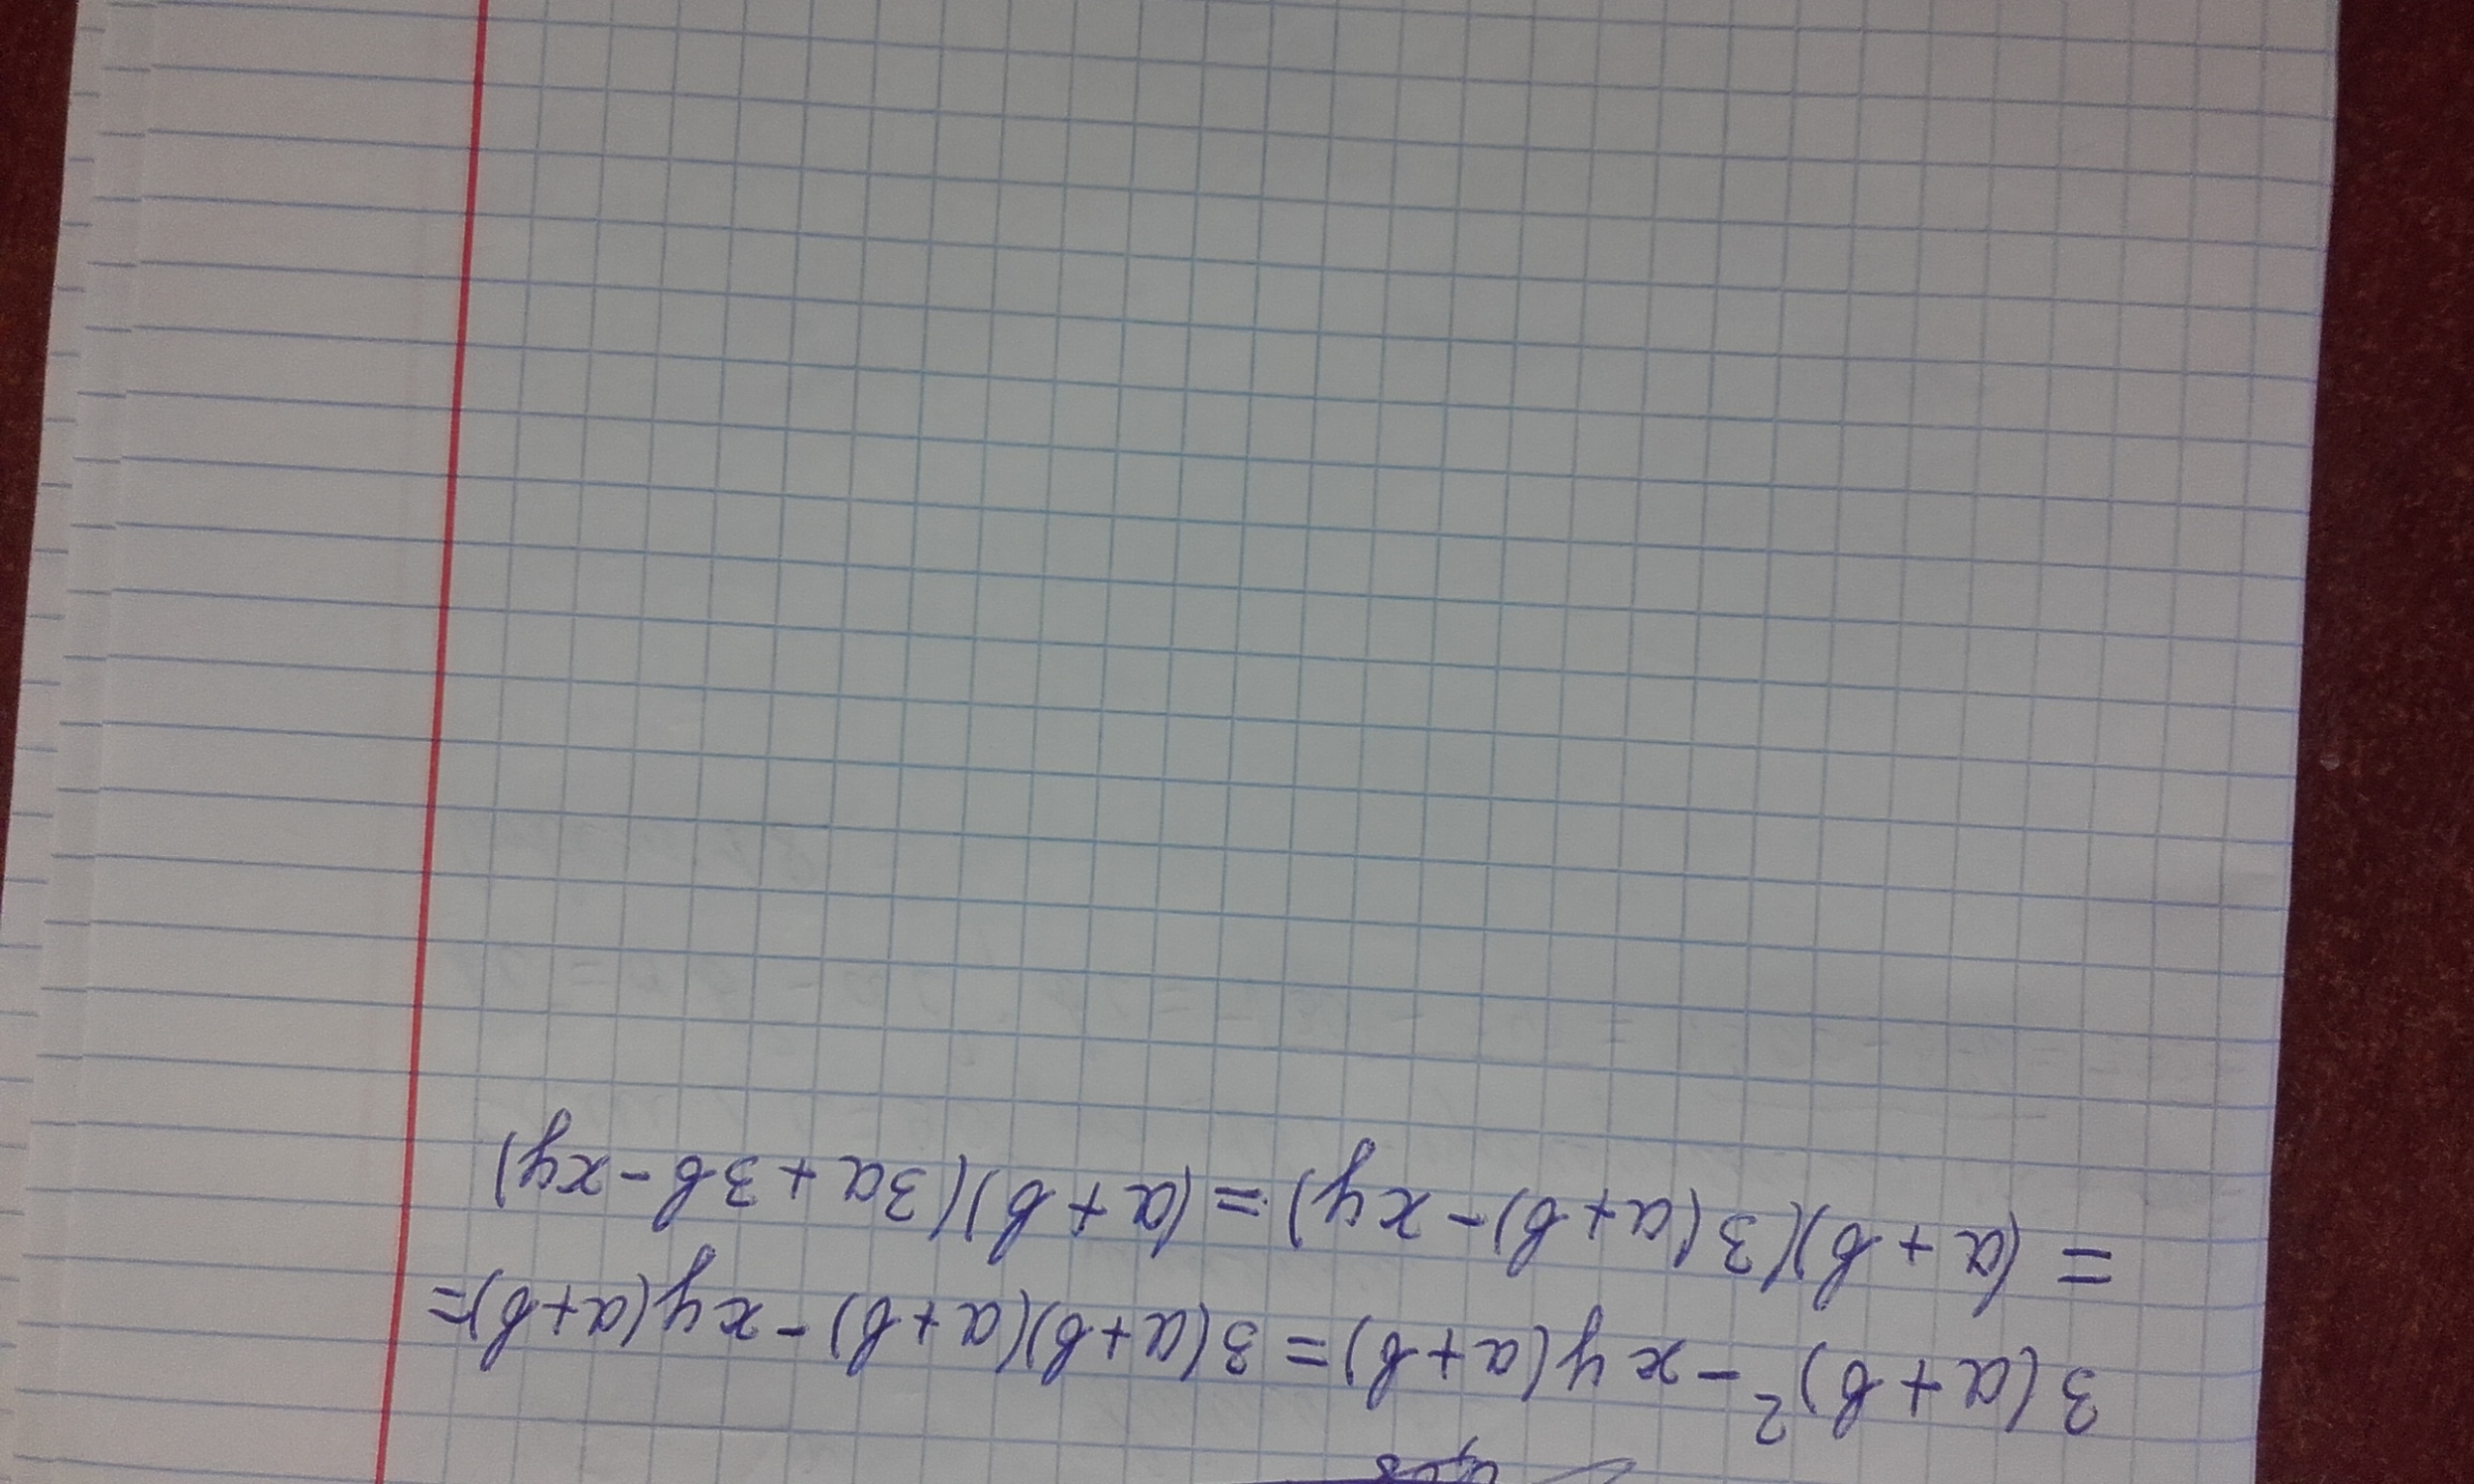 3(a+b)²-xy(a+b)=3(a+b)(a+b)-xy(a+b)=
=(a+b)(3(a+b)-xy)=(a+b)(3a+3b-xy)